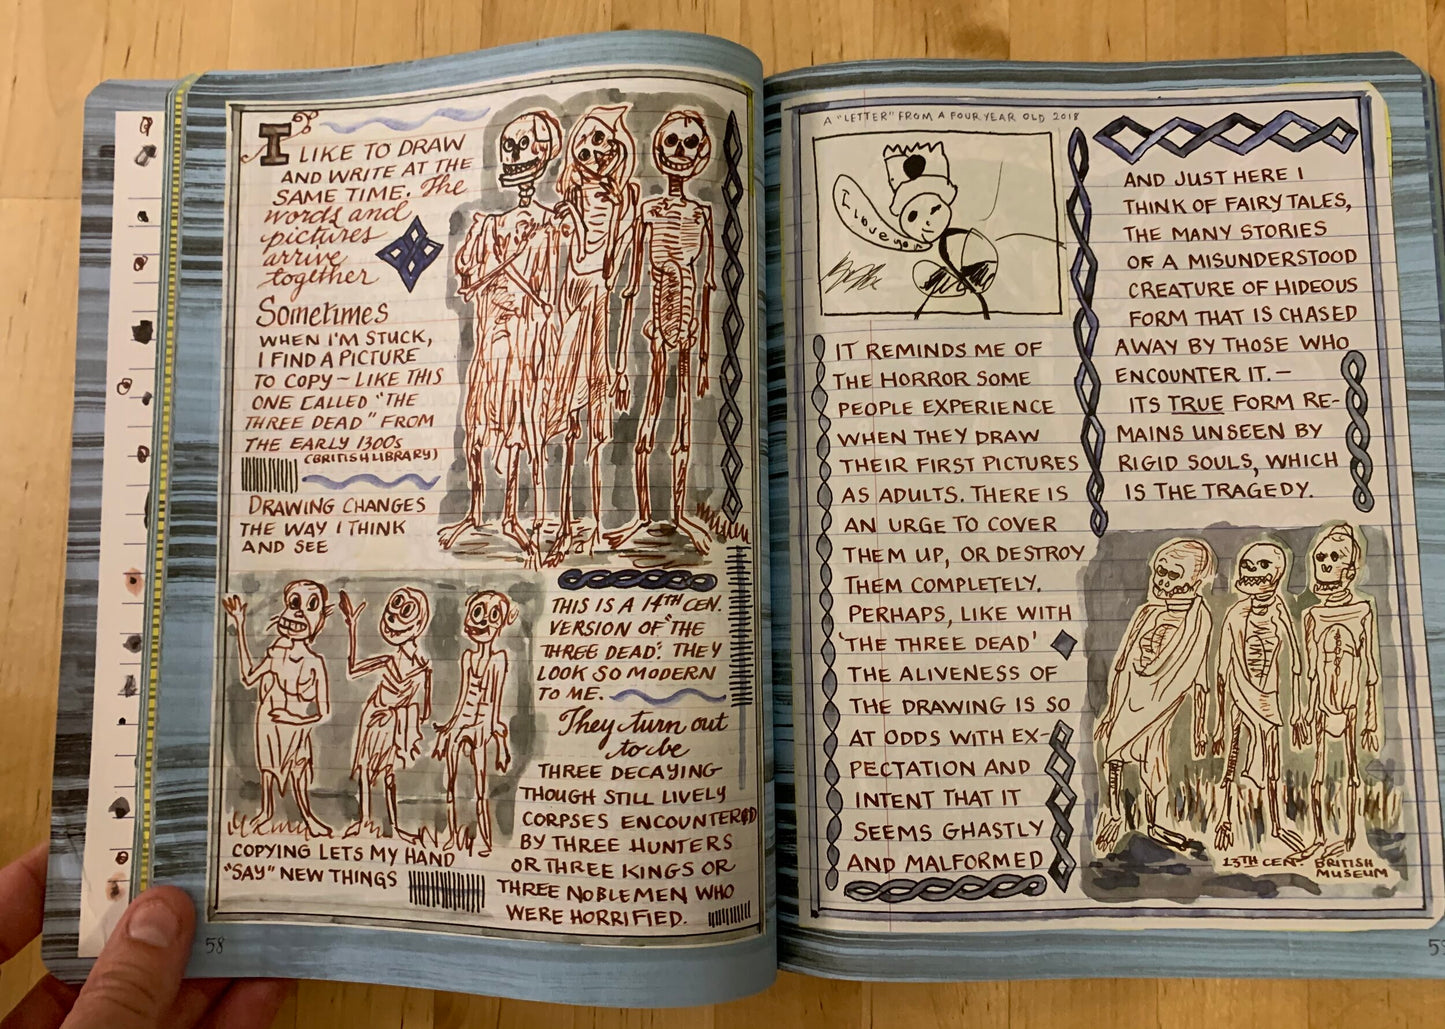 I LIKE TO DRAW
AND WRITE AT THE
SAME TIME. The
words and
pictures
arrive
together
Sometimes
WHEN I'M STUCK,
I FIND A PICTURE
TO COPY – LIKE THIS
ONE CALLED "THE
THREE DEAD" FROM
THE EARLY 1300s
(BRITISH LIBRARY)
DRAWING CHANGES
THE WAY I THINK
AND SEE
COPYING LETS MY HAND
"SAY" NEW THINGS
THIS IS A 14TH CEN.
VERSION OF "THE
THREE DEAD". THEY
LOOK SO MODERN
TO ME.
They turn out
to be
THREE DECAYING
THOUGH STILL LIVELY
CORPSES ENCOUNTERED
BY THREE HUNTERS
OR THREE KINGS OR
THREE NOBLEMEN WHO
WERE HORRIFIED.
58
A "LETTER" FROM A FOUR YEAR OLD 2018
I love you
IT REMINDS ME OF
THE HORROR SOME
PEOPLE EXPERIENCE
WHEN THEY DRAW
THEIR FIRST PICTURES
AS ADULTS. THERE IS
AN URGE TO COVER
THEM UP, OR DESTROY
THEM COMPLETELY.
PERHAPS, LIKE WITH
'THE THREE DEAD'
THE ALIVENESS OF
THE DRAWING IS SO
AT ODDS WITH EX-
PECTATION AND
INTENT THAT IT
SEEMS GHASTLY
AND MALFORMED
AND JUST HERE I
THINK OF FAIRY TALES,
THE MANY STORIES
OF A MISUNDERSTOOD
CREATURE OF HIDEOUS
FORM THAT IS CHASED
AWAY BY THOSE WHO
ENCOUNTER IT. –
ITS TRUE FORM RE-
MAINS UNSEEN BY
RIGID SOULS, WHICH
IS THE TRAGEDY.
13TH CEN. BRITISH
MUSEUM